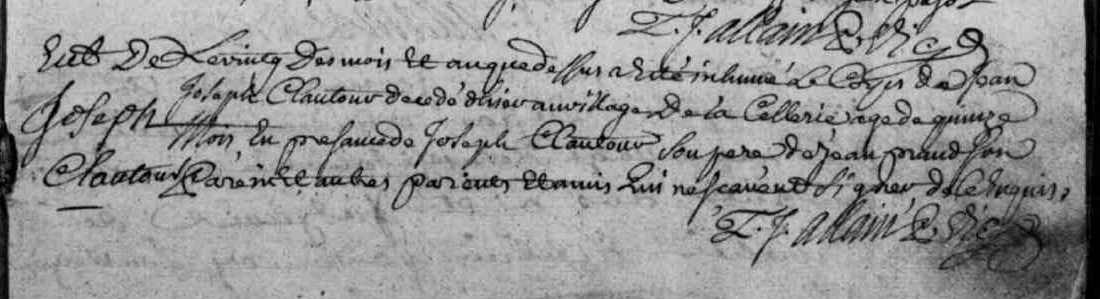 T. J. allain P. Vic
Le vincq des mois et an que dessus a Eté inhumé Le Corps de Jean
Joseph Clautour decedé d'hier au village de la Cellerie age de quinze
Joseph
Mois En presance de Joseph Clautour Son pere de Jean praud Son
Clautour
Parein Et autres parents Et amis qui ne scavent Signer de ce Enquis.
T. J. allain P. Vic